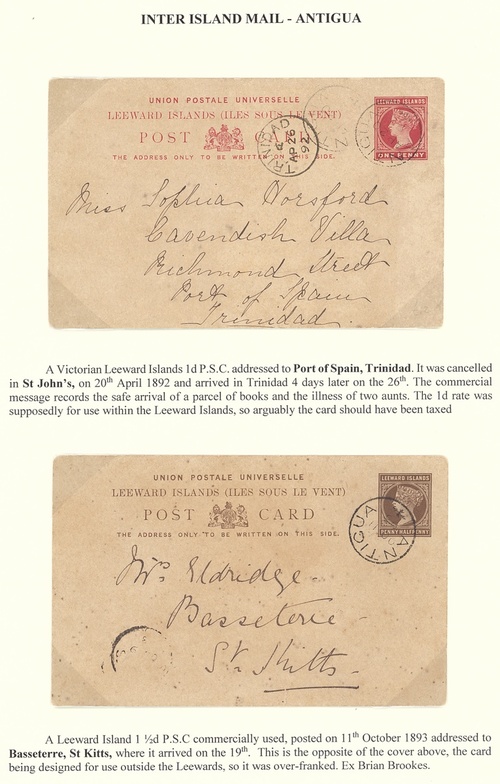 INTER ISLAND MAIL - ANTIGUA
UNION POSTALE UNIVERSELLE
LEEWARD ISLANDS (ILES SOUS LE VENT)
POST CARD
THE ADDRESS ONLY TO BE WRITTEN ON THIS SIDE.
LEEWARD ISLANDS
ONE PENNY
TRINIDAD
AP 26
92
Miss Sophia Horsford
Cavendish Villa
Richmond Street
Port of Spain
Trinidad.
A Victorian Leeward Islands 1d P.S.C. addressed to Port of Spain, Trinidad. It was cancelled
in St John's, on 20th April 1892 and arrived in Trinidad 4 days later on the 26th. The commercial
message records the safe arrival of a parcel of books and the illness of two aunts. The 1d rate was
supposedly for use within the Leeward Islands, so arguably the card should have been taxed
UNION POSTALE UNIVERSELLE
LEEWARD ISLANDS (ILES SOUS LE VENT)
POST CARD
THE ADDRESS ONLY TO BE WRITTEN ON THIS SIDE.
LEEWARD ISLANDS
PENNY HALFPENNY
ANTIGUA
Mrs Eldridge
Basseterre
St Kitts
A Leeward Island 1 ½d P.S.C commercially used, posted on 11th October 1893 addressed to
Basseterre, St Kitts, where it arrived on the 19th. This is the opposite of the cover above, the card
being designed for use outside the Leewards, so it was over-franked. Ex Brian Brookes.